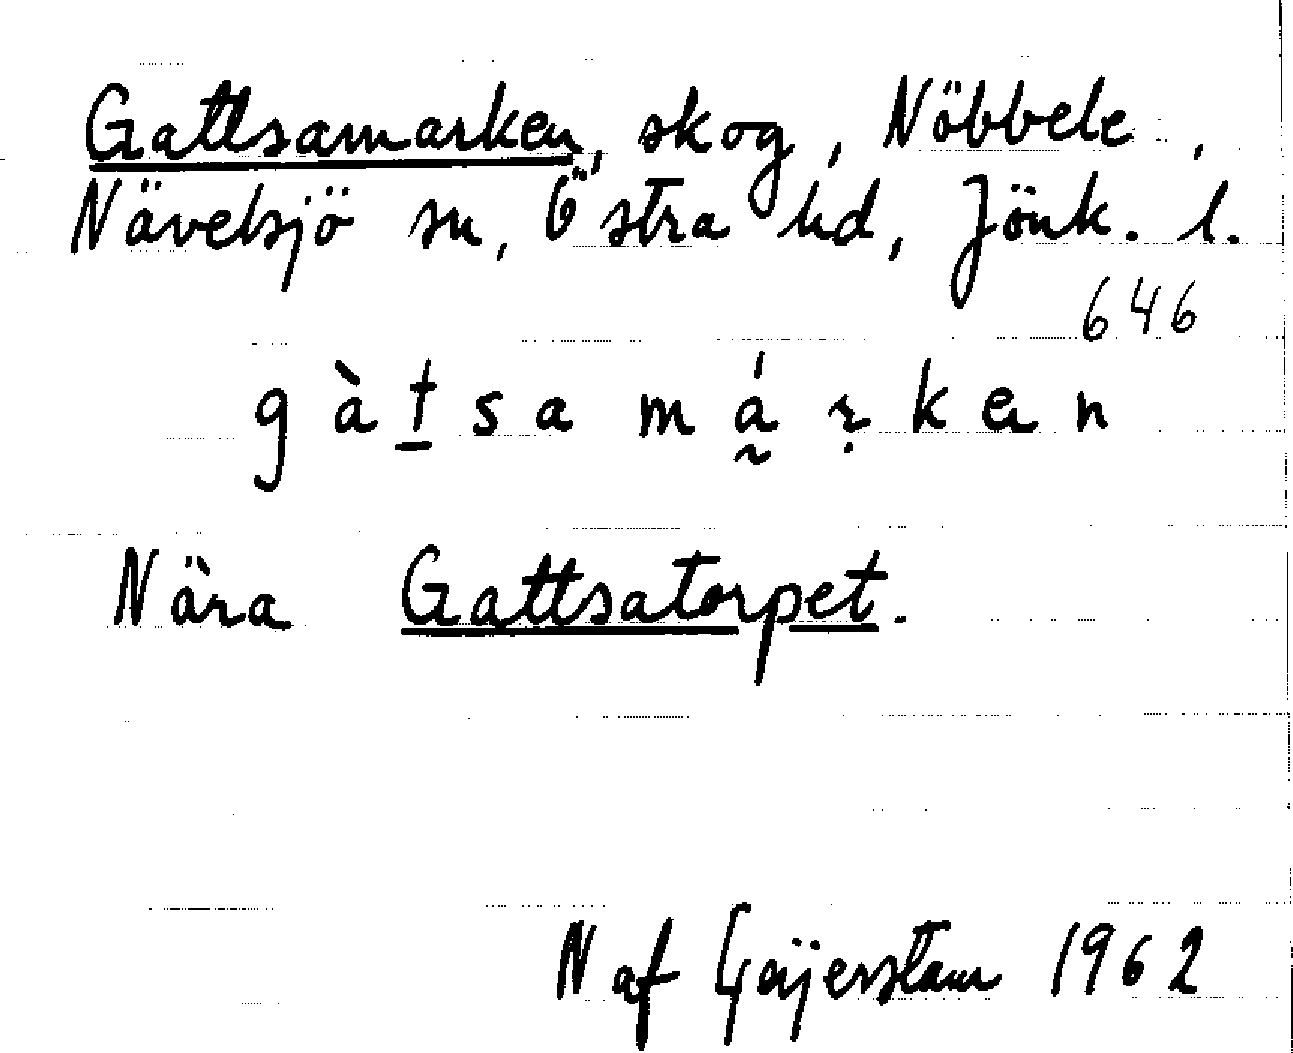 Gattsamarken, skog, Nöbbele,
Nävelsjö sn, Östra hd, Jönk. l.
646
gàtsamá̰ṛken
Nära Gattsatorpet.
N af Geijerstam 1962